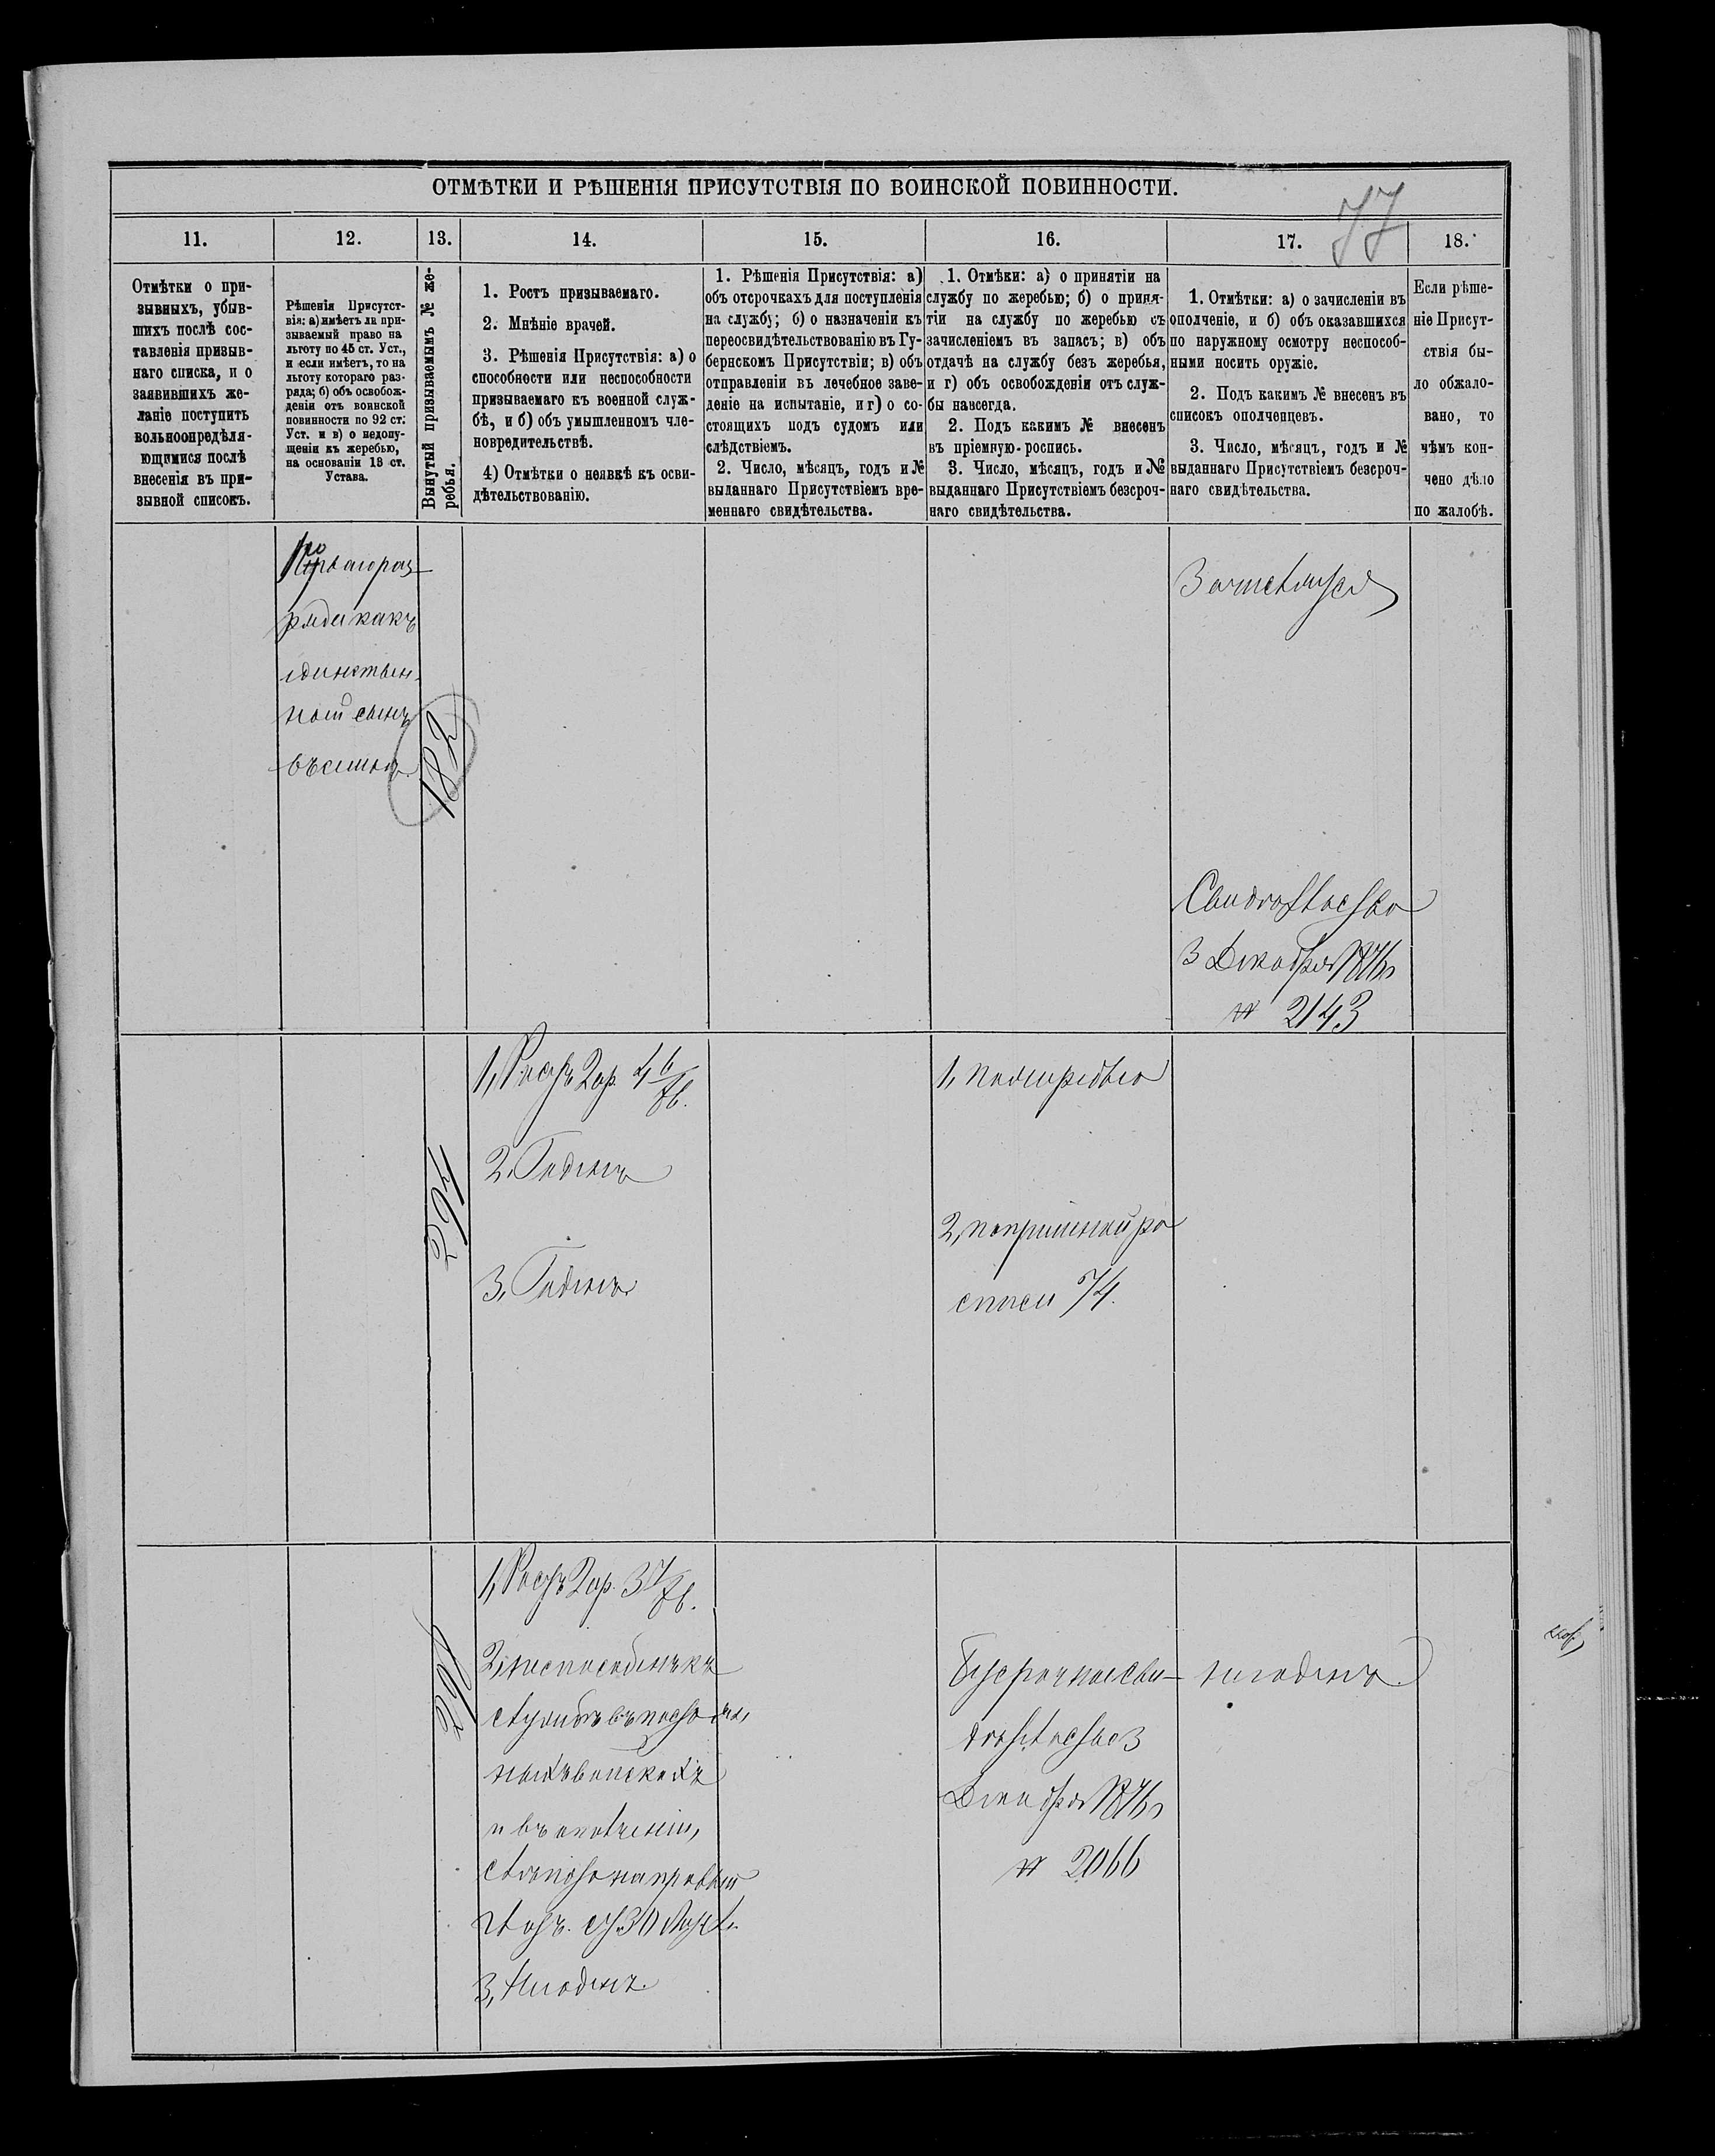 ОТМѢТКИ И РѢШЕНІЯ ПРИСУТСТВІЯ ПО ВОИНСКОЙ ПОВИННОСТИ.
77
11.
12.
13.
14.
15.
16.
17.
18.
Отмѣтки о при-
зывныхъ, убыв-
шихъ послѣ сос-
тавленія призыв-
наго списка, и о
заявившихъ же-
ланіе поступить
вольноопредѣля-
ющимися послѣ
внесенія въ при-
зывной списокъ.
Рѣшенія Присутст-
вія: а) имѣетъ ли при-
зываемый право на
льготу по 45 ст. Уст.,
и если имѣетъ, то на
льготу котораго раз-
ряда; б) объ освобож-
деніи отъ воинской
повинности по 92 ст.
Уст. и в) о недопу-
щеніи къ жеребью,
на основаніи 18 ст.
Устава.
Вынутый призываемымъ № же-
ребья.
1. Ростъ призываемаго.
2. Мнѣніе врачей.
3. Рѣшенія Присутствія: а) о
способности или неспособности
призываемаго къ военной служ-
бѣ, и б) объ умышленномъ чле-
новредительствѣ.
4) Отмѣтки о неявкѣ къ осви-
дѣтельствованію.
1. Рѣшенія Присутствія: а)
объ отсрочкахъ для поступленія
на службу; б) о назначеніи къ
переосвидѣтельствованію въ Гу-
бернскомъ Присутствіи; в) объ
отправленіи въ лечебное заве-
деніе на испытаніе, и г) о со-
стоящихъ подъ судомъ или
слѣдствіемъ.
2. Число, мѣсяцъ, годъ и №
выданнаго Присутствіемъ вре-
меннаго свидѣтельства.
1. Отмѣки: а) о принятіи на
службу по жеребью; б) о приня-
тіи на службу по жеребью съ
зачисленіемъ въ запасъ; в) объ
отдачѣ на службу безъ жеребья,
и г) объ освобожденіи отъ служ-
бы навсегда.
2. Подъ какимъ № внесенъ
въ пріемную-роспись.
3. Число, мѣсяцъ, годъ и №
выданнаго Присутствіемъ безсроч-
наго свидѣтельства.
1. Отмѣтки: а) о зачисленіи въ
ополченіе, и б) объ оказавшихся
по наружному осмотру неспособ-
ными носить оружіе.
2. Подъ какимъ № внесенъ въ
списокъ ополченцевъ.
3. Число, мѣсяцъ, годъ и №
выданнаго Присутствіемъ безсроч-
наго свидѣтельства.
Если рѣше-
ніе Присут-
ствія бы-
ло обжало-
вано, то
чѣмъ кон-
чено дѣло
по жалобѣ.
Перваго раз-
ряда какъ
единствен-
ной сынъ
въ семьѣ.
182
Зачисляется
Свидѣтельство
3 Декабря 1876
№ 2143
294
1, Ростъ 2 ар. 4 6/8 в.
2. Годенъ
3. Годенъ
1, по жеребью
2, по пріемной ро
списи 74.
1, Ростъ 2 ар. 3 7/8 в.
2, неспособенъ къ
службѣ въ постоян
ныхъ войскахъ
и въ ополченіи,
слѣпота на правый
глазъ. ст 30 лит.
3, Негоденъ.
Безсрочное сви-
дѣтельство 3
Декабря 1876
№ 2066
негоденъ